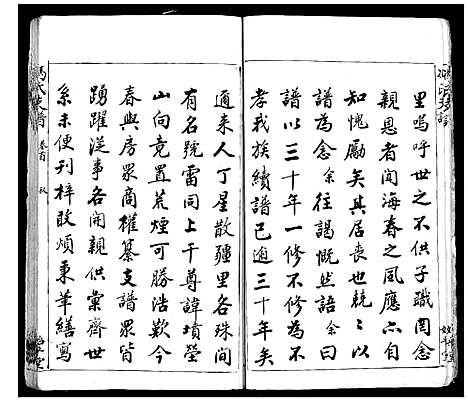 里嗚呼世之不供子職罔念
親恩者聞海春之風應亦自
知愧勵矣其居喪也兢兢以
譜為念余往謁慨然語余曰
譜以三十年一修不修為不
孝我族續譜已逾三十年矣
邇來人丁星散疆里各殊間
有名號雷同上千尊諱墳塋
山向竟置荒煙可勝浩歎今
春與房眾商權纂支譜眾皆
踴躍從事各開親供彙齊世
系未便刊梓敢煩秉筆繕寫
馮氏支譜 卷首 敘